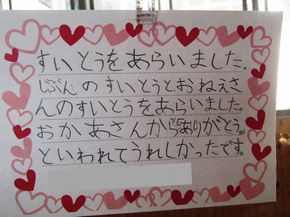 すいとうをあらいました。
じぶんのすいとうとおねえさ
んのすいとうをあらいました。
おかあさんからありがとう。
といわれてうれしかったです。